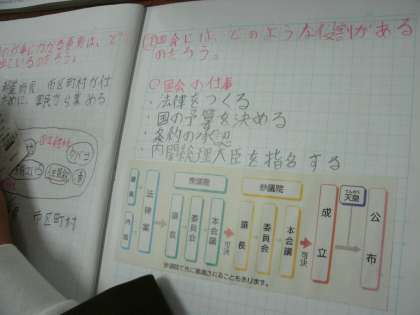 市区町村が
ために、国民から集める
市区町村
国会には、どのような役割がある
のだろう。
○国会の仕事
・法律をつくる
・国の予算を決める
・条約の承認
・内閣総理大臣を指名する
法律案
衆議院
議長
委員会
本会議
可決
参議院
議長
委員会
本会議
可決
成立
天皇
公布
参議院で先に審議されることもあります。